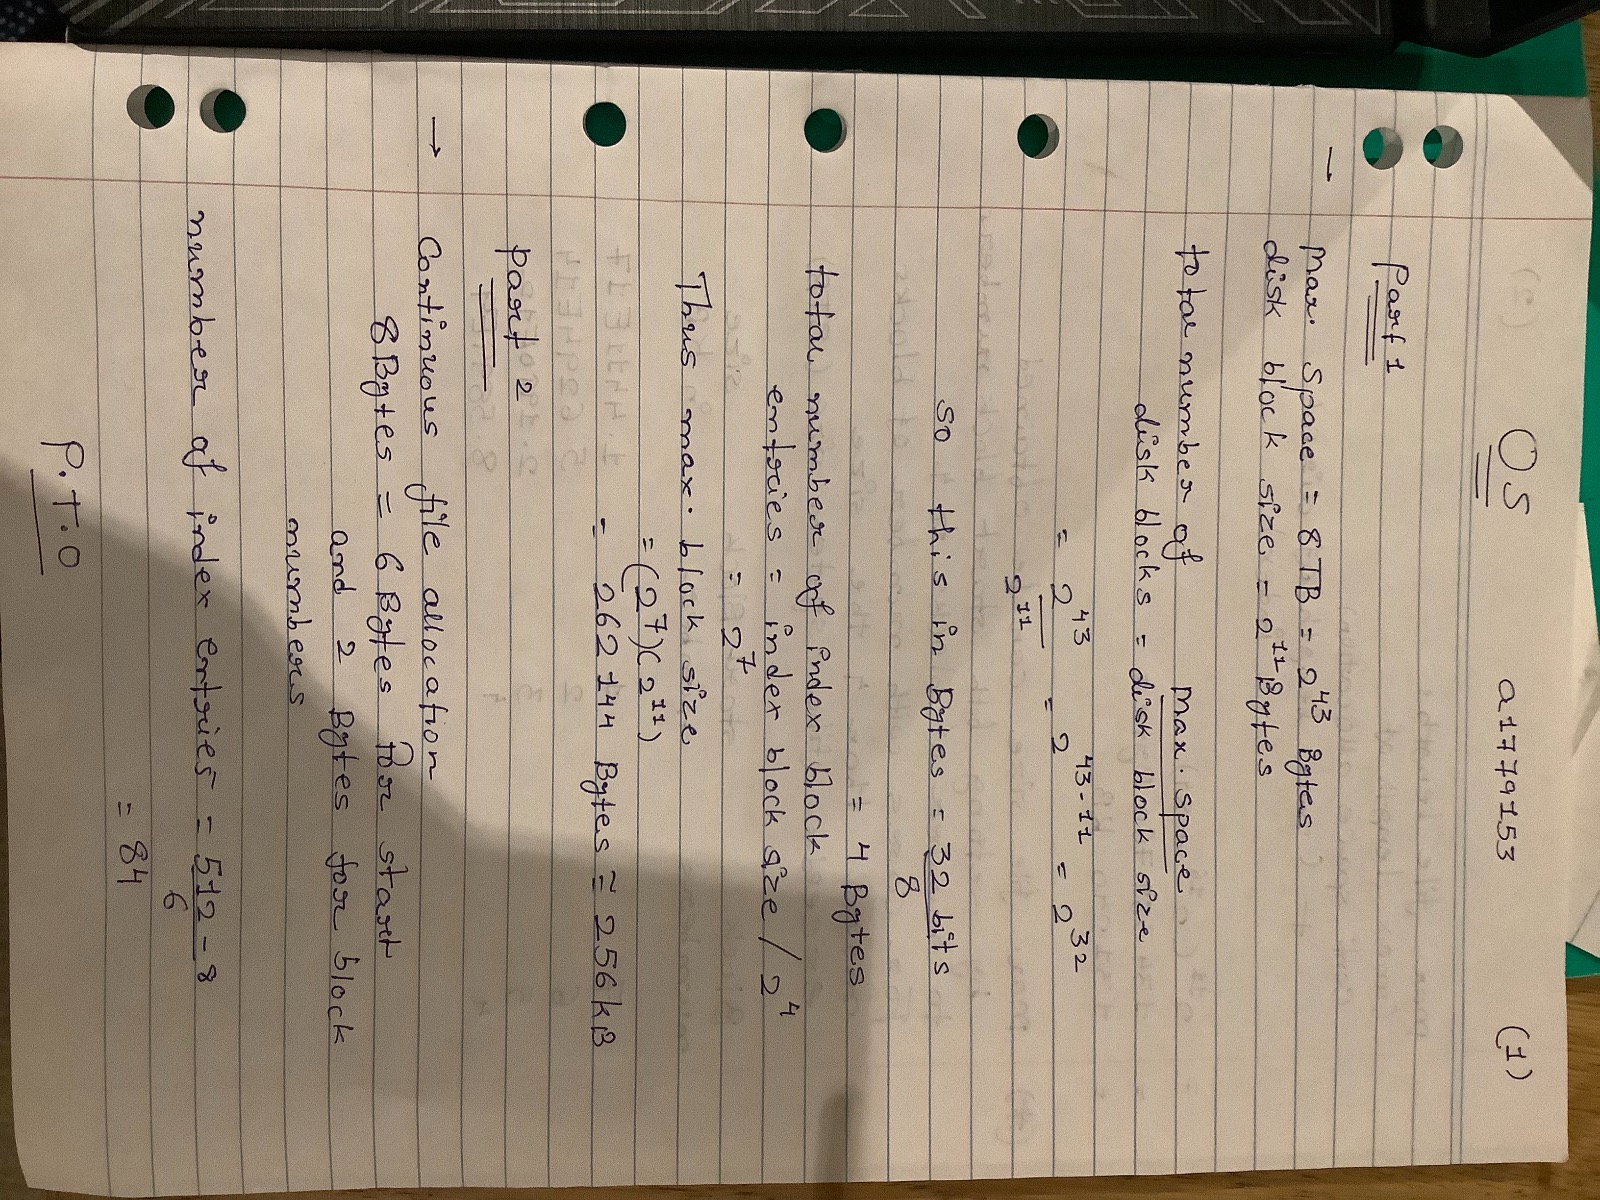 OS a1779153 (1)
Part 1
→ Max. Space = 8 TB = 2^43 Bytes
disk block size = 2^11 Bytes
total number of disk blocks = max. space / disk block size
= 2^43 / 2^11 = 2^43-11 = 2^32
so this in Bytes = 32 bits / 8
= 4 Bytes
total number of index block
entries = index block size / 2^4
= 2^7
Thus max. block size
= (2^7)(2^11)
= 262 144 Bytes ≅ 256 kB
part 2
→ Continuous file allocation
8 Bytes = 6 Bytes For start
and 2 Bytes for block
numbers
number of index entries = 512 - 8 / 6
= 84
P.T.O